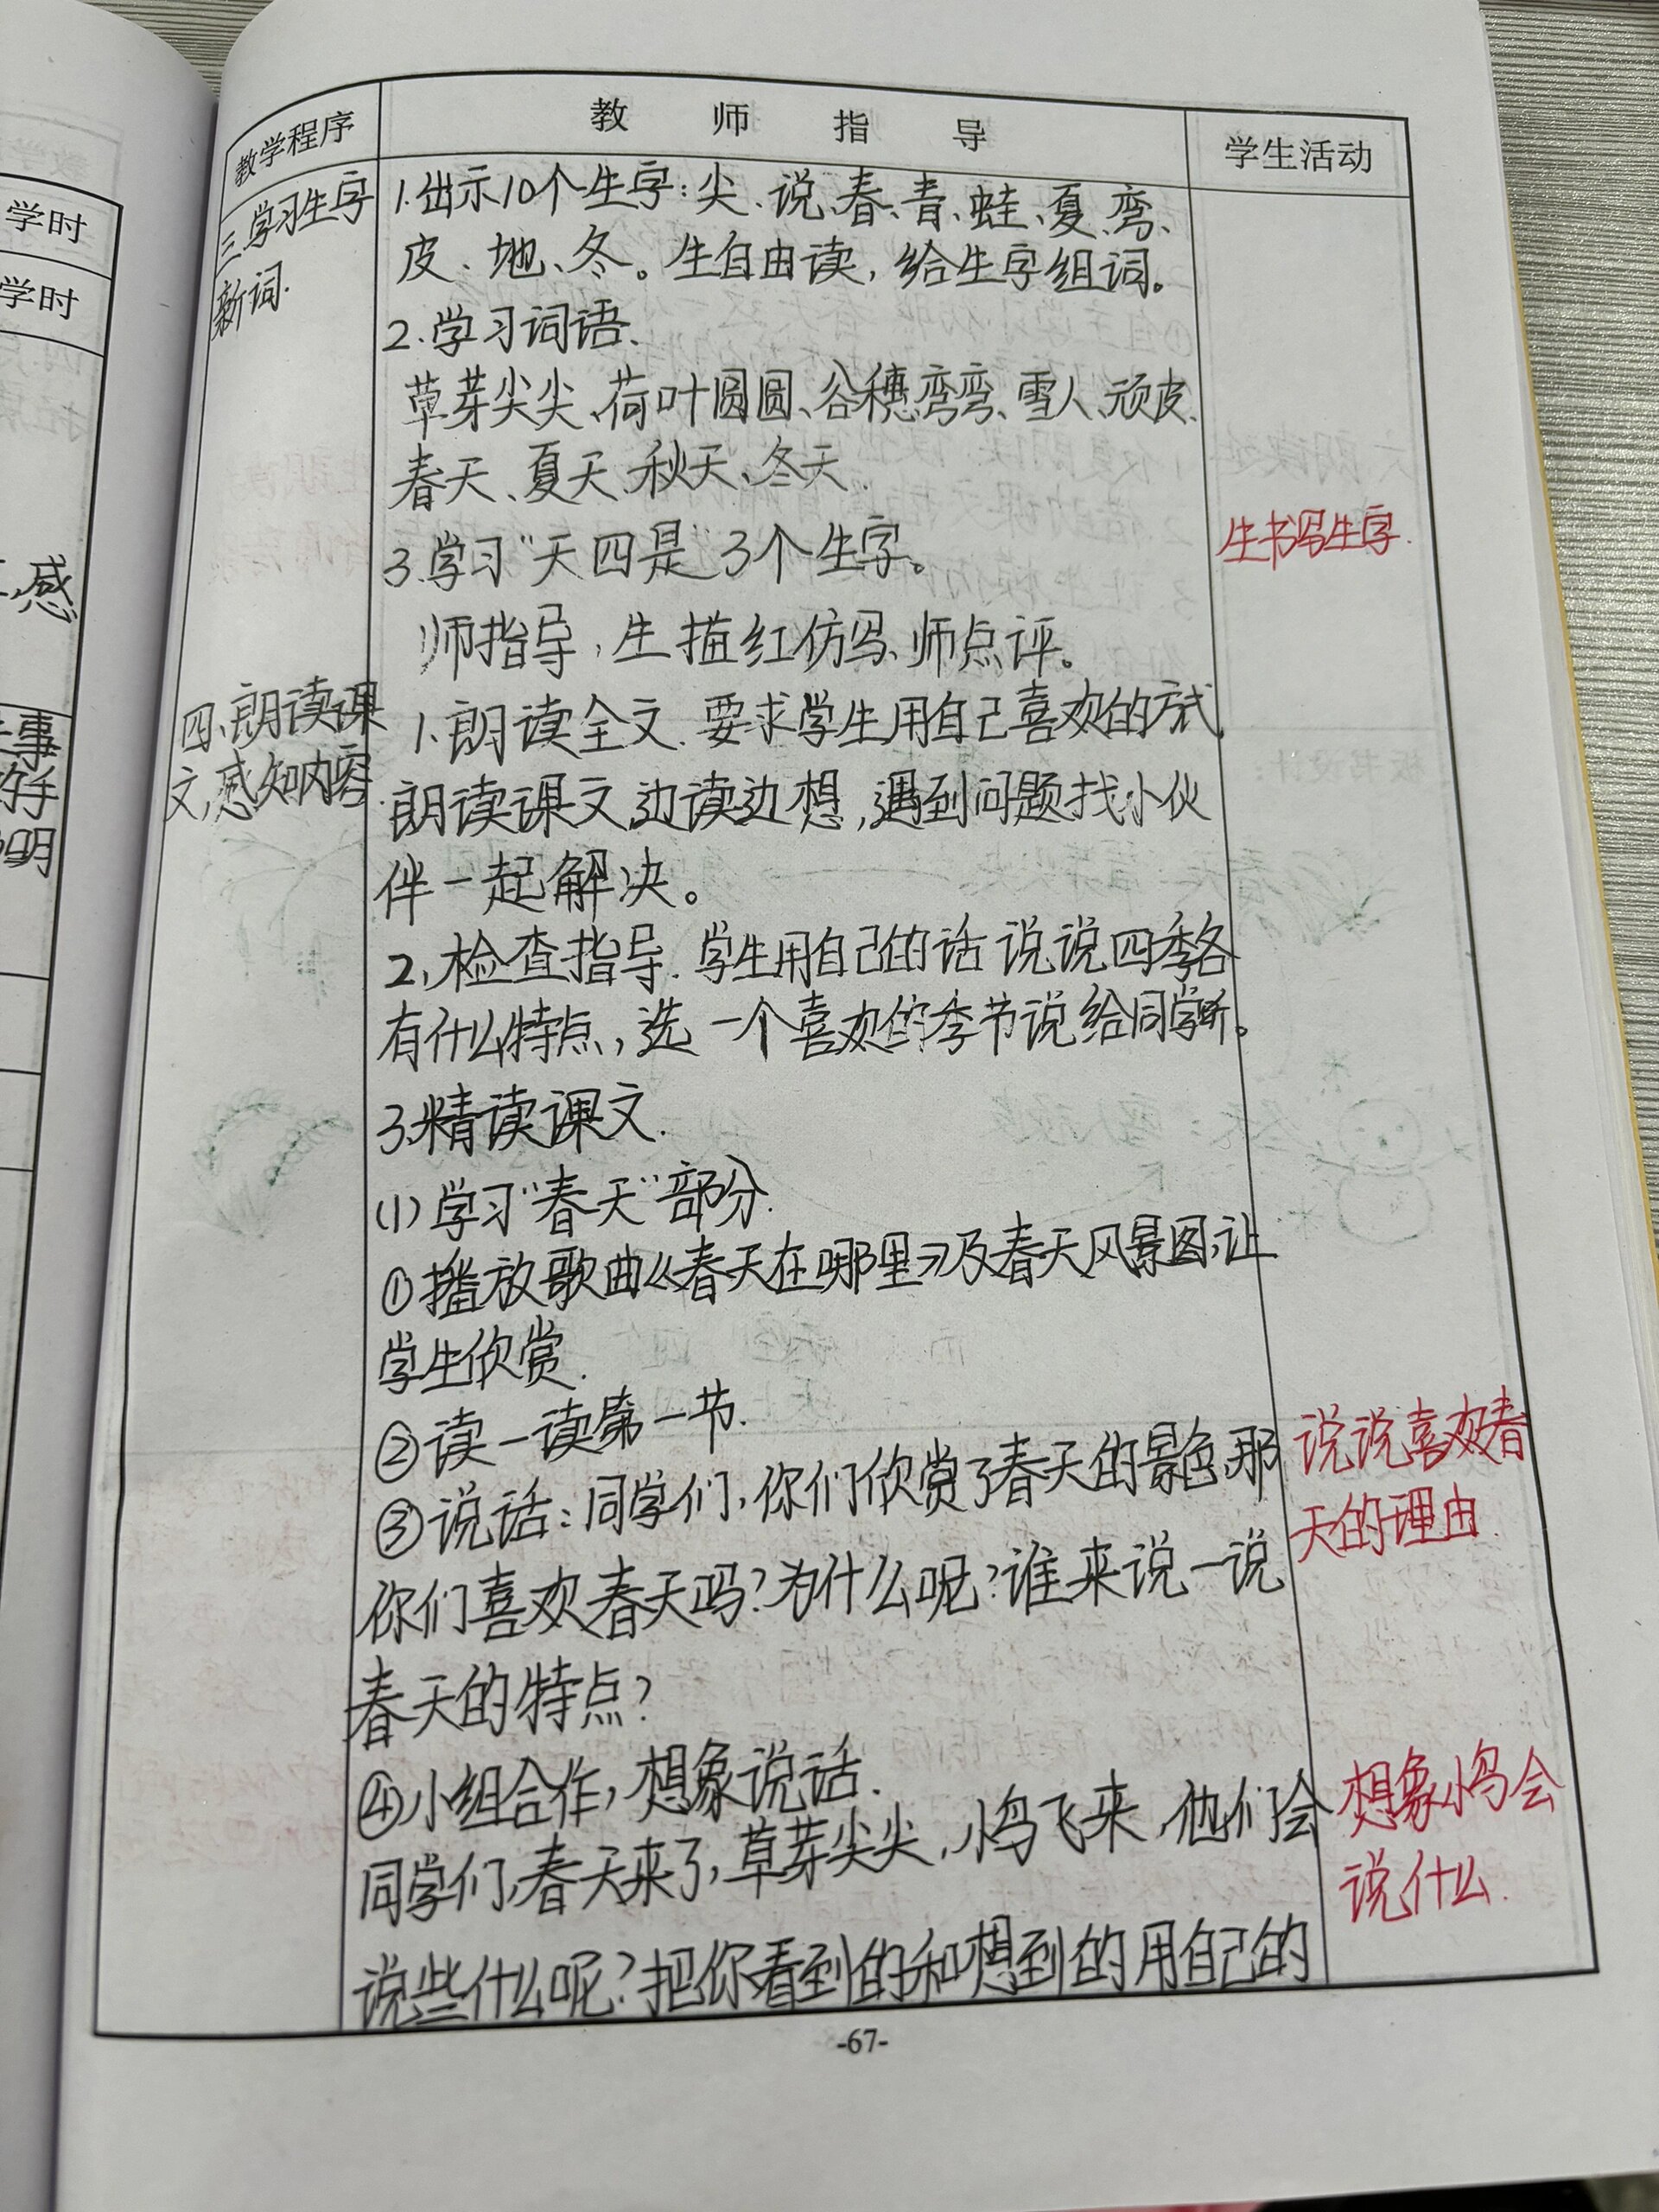 学时
学时
感
事
好手
明
教学程序
教 师 指 导
学生活动
三.学习生字
新词.
1.出示10个生字:尖、说、春、青、蛙、夏、弯、
皮、地、冬。生自由读,给生字组词。
2.学习词语.
草芽尖尖、荷叶圆圆、谷穗弯弯、雪人、顽皮.
春天、夏天、秋天、冬天.
3.学习“天四是”3个生字。
生书写生字.
师指导,生描红仿写、师点评。
四、朗读课
文,感知内容.
1.朗读全文.要求学生用自己喜欢的方式
朗读课文,边读边想,遇到问题找小伙
伴一起解决。
2,检查指导.学生用自己的话说说四季各
有什么特点,选一个喜欢的季节说给同学听。
3.精读课文.
(1)学习“春天”部分.
①播放歌曲《春天在哪里》及春天风景图,让
学生欣赏.
②读一读第一节.
③说话:同学们,你们欣赏了春天的景色,那
你们喜欢春天吗?为什么呢?谁来说一说
春天的特点?
说说喜欢春
天的理由.
④小组合作,想象说话.
同学们,春天来了,草芽尖尖,小鸟飞来,他们会
说些什么呢?把你看到的和想到的用自己的
想象小鸟会
说什么.
-67-